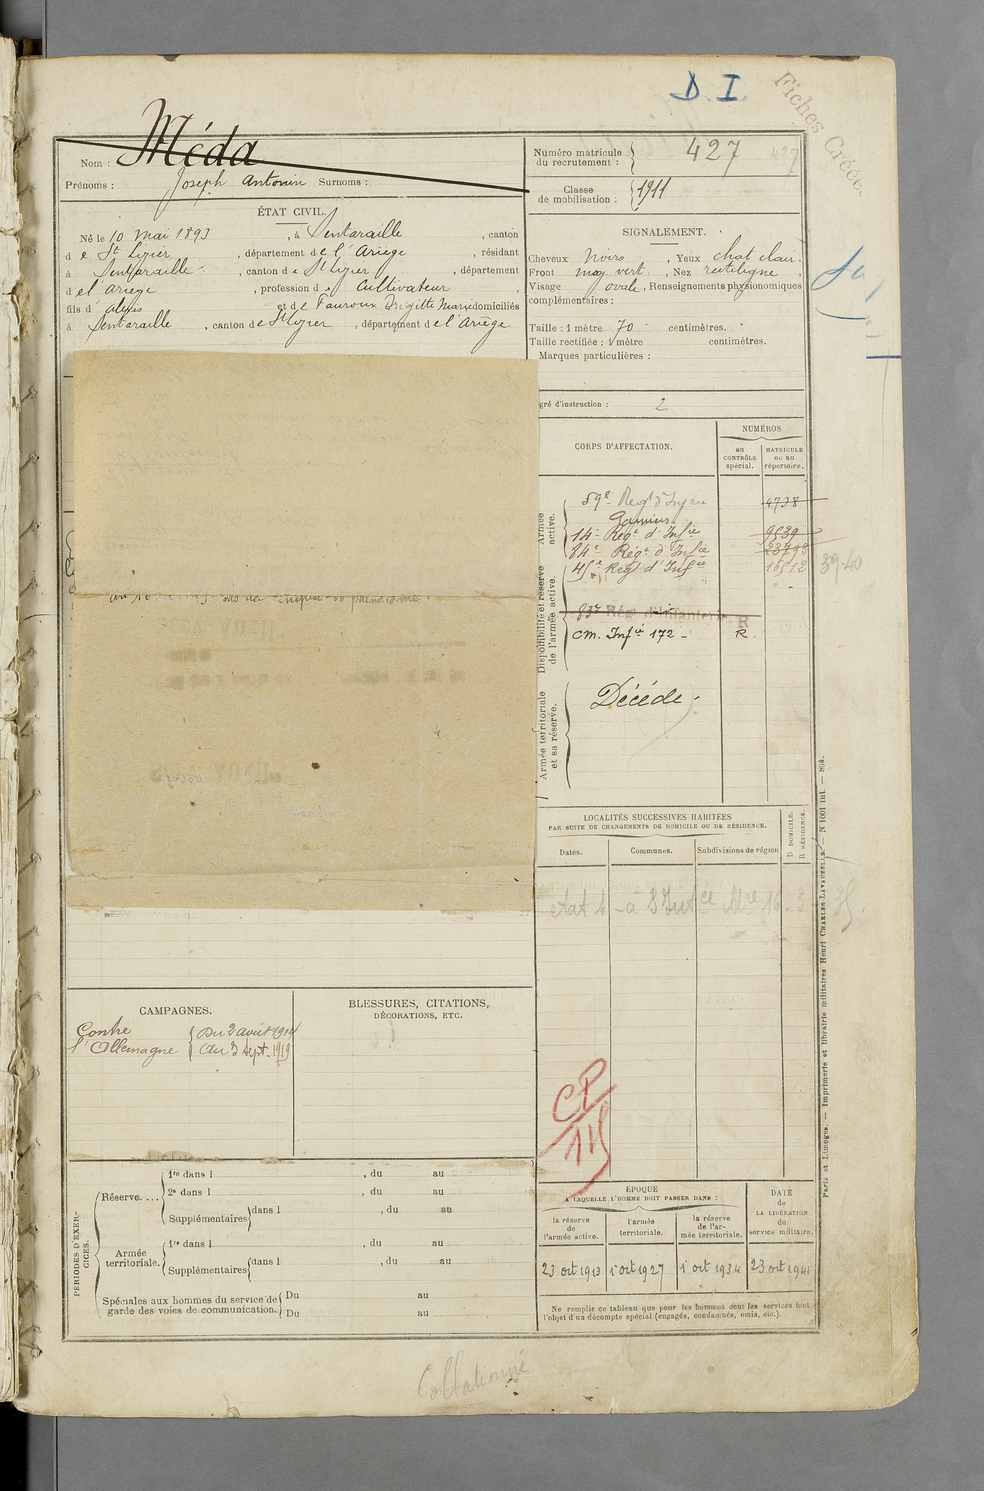 D. I.
Fiches Créées
Nom : Méda
Prénoms : Joseph Antonin Surnoms :
Numéro matricule du recrutement : 427
Classe de mobilisation : 1911
ÉTAT CIVIL.
Né le 10 mai 1893, à Sentaraille, canton
de St Lizier, département de l'Ariège, résidant
à Sentaraille, canton de St Lizier, département
de l'Ariège, profession de Cultivateur
fils d'Alexis et de Fauroux Brigitte Marie domiciliés
à Sentaraille, canton de St Lizier, département de l'Ariège
SIGNALEMENT.
Cheveux Noirs, Yeux chat. clair.
Front moy. vert., Nez rectiligne,
Visage ovale, Renseignements physionomiques
complémentaires :
Taille : 1 mètre 70 centimètres.
Taille rectifiée : 1 mètre centimètres.
Marques particulières :
gré d'instruction : 2
CORPS D'AFFECTATION.
NUMÉROS
au CONTRÔLE spécial.
MATRICULE ou au répertoire.
Armée active.
59e Regt d'Infrie 4738
14e Régt d'Infie 9539
84e Régt d'Infie 23793
45e Regt d'Infie 16512
39-40
Disponibilité et réserve de l'armée active.
83e Rég. d'Infanterie R
cm. Infie 172 - R.
Armée territoriale et sa réserve.
Décédé.
LOCALITÉS SUCCESSIVES HABITÉES
PAR SUITE DE CHANGEMENTS DE DOMICILE OU DE RÉSIDENCE.
Dates.
Communes.
Subdivisions de région
D DOMICILE.
R RÉSIDENCE.
CAMPAGNES.
Contre l'Allemagne { Du 2 août 1914
au 3 Sept. 1919
BLESSURES, CITATIONS,
DÉCORATIONS, ETC.
CP
115
PÉRIODES D'EXERCICES.
Réserve.... 1re dans l , du au
2e dans l , du au
Supplémentaires dans l , du au
Armée territoriale. 1re dans l , du au
Supplémentaires dans l , du au
Spéciales aux hommes du service de garde des voies de communication. Du au
Du au
ÉPOQUE
A LAQUELLE L'HOMME DOIT PASSER DANS :
la réserve de l'armée active.
l'armée territoriale.
la réserve de l'armée territoriale.
DATE de LA LIBÉRATION du service militaire.
23 oct 1913
1 oct 1927
1 oct 1934
23 oct 1941
Ne remplir ce tableau que pour les hommes dont les services font
l'objet d'un décompte spécial (engagés, condamnés, omis, etc.)
Paris et Limoges. — Imprimerie et librairie militaires Henri CHARLES-LAVAUZELLE. — N 1001 int. — 894.
Collationné